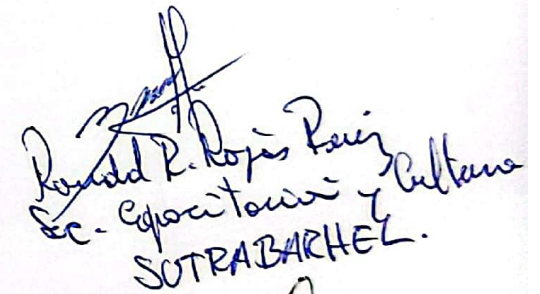 Ronald R. Rojas Ruiz
Sec. Capacitación y Cultura
SUTRABARHEL.